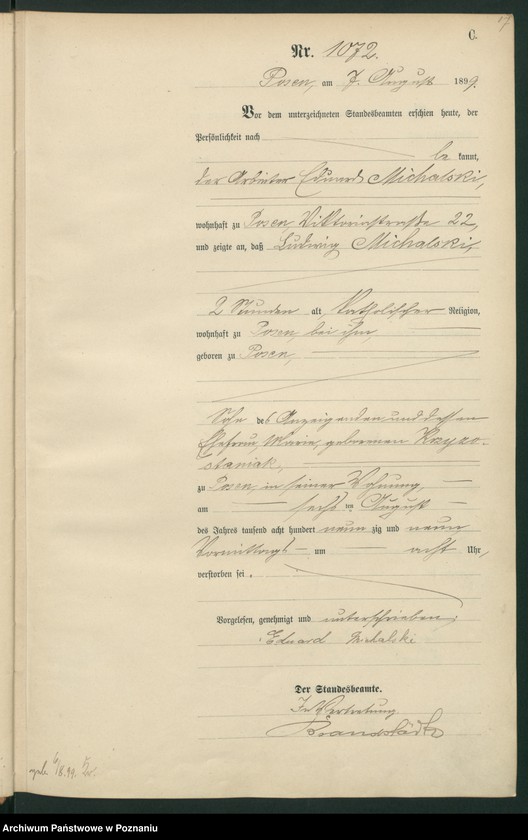 17
C.
Nr. 1072.
Posen, am 7. August 1899.
Vor dem unterzeichneten Standesbeamten erschien heute, der
Persönlichkeit nach
be kannt,
der Arbeiter Eduard Michalski,
wohnhaft zu Posen Viktoriastraße 22,
und zeigte an, daß Ludwig Michalski,
2 Stunden alt, katholischer Religion,
wohnhaft zu Posen, bei ihm,
geboren zu Posen,
Sohn des Anzeigenden und dessen
Ehefrau, Marie, geborenen Krzyzo-
staniak,
zu Posen, in seiner Wohnung,
am sechsten August
des Jahres tausend acht hundert neun zig und neun
Vormittags um acht Uhr,
verstorben sei.
Vorgelesen, genehmigt und unterschrieben.
Eduard Michalski
Der Standesbeamte.
In Vertretung
Brandstädter
6/8.99.
Archiwum Państwowe w Poznaniu